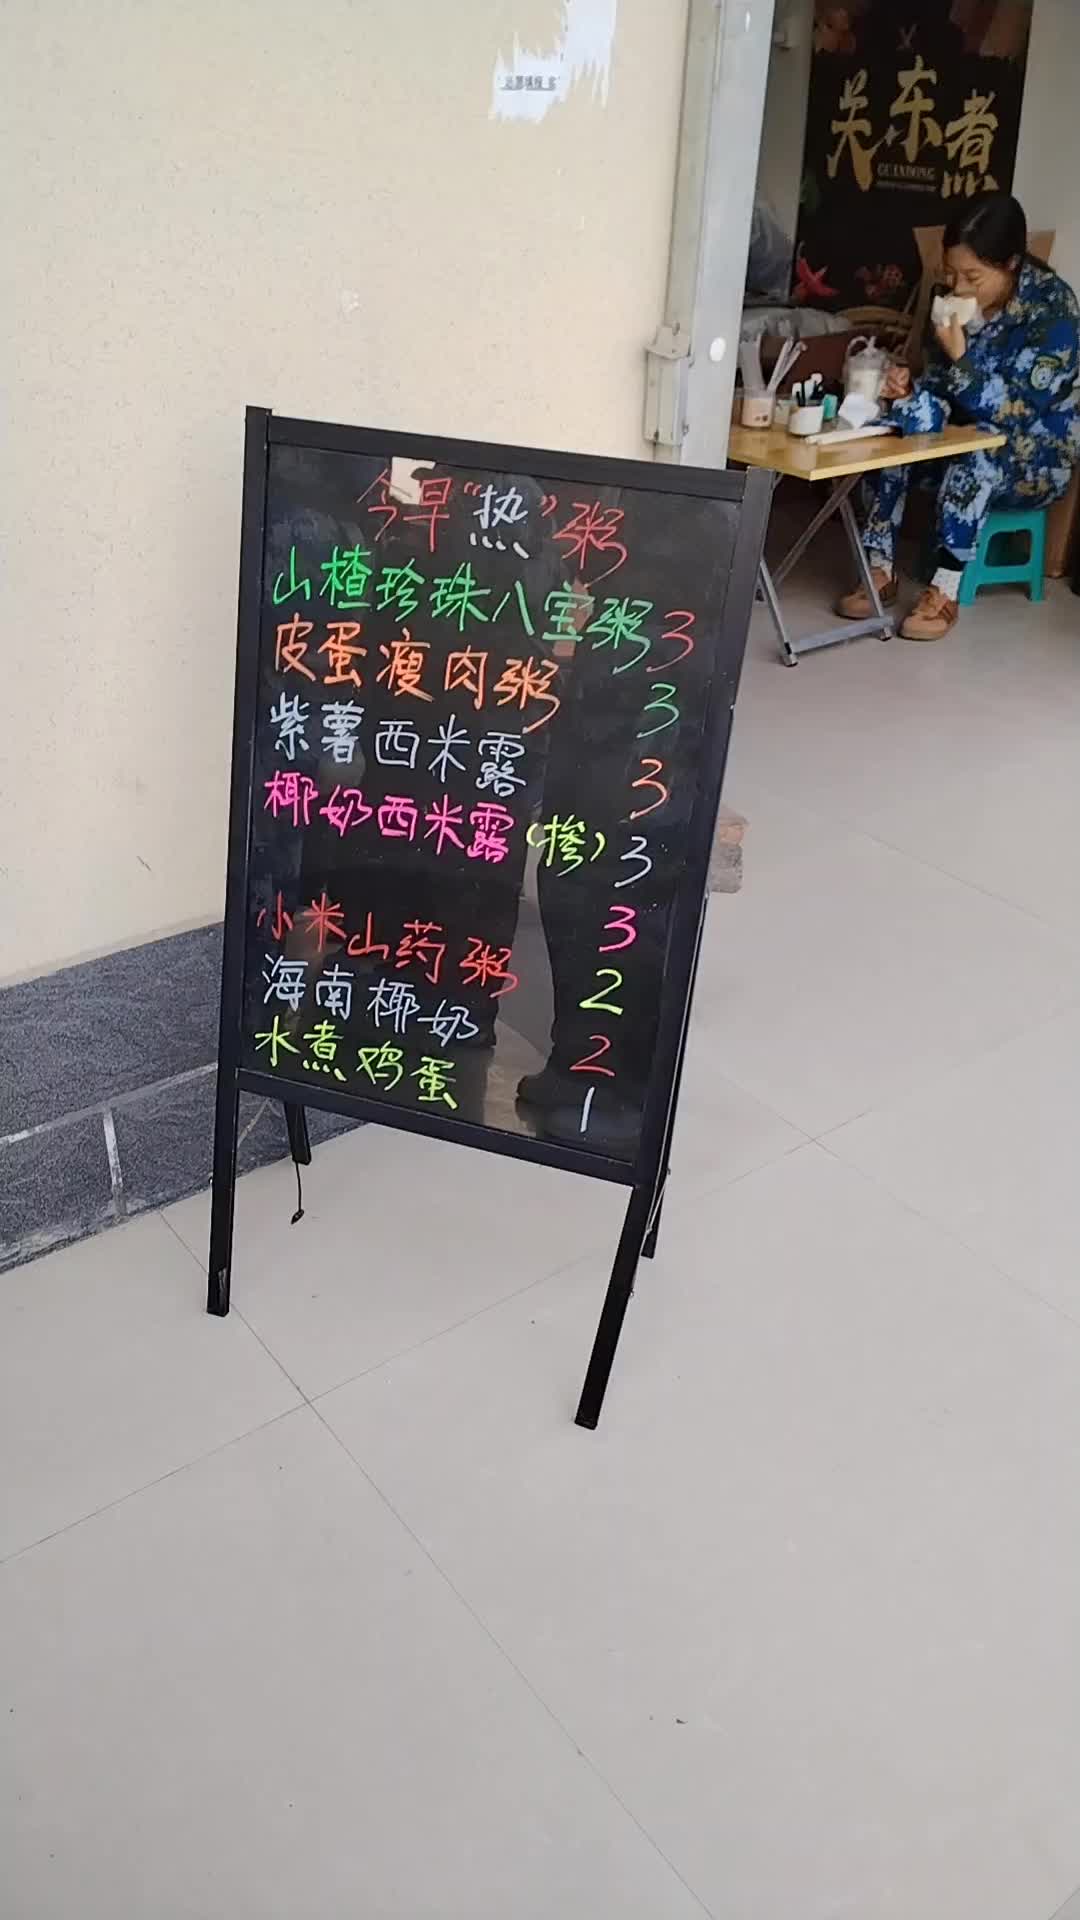 关东煮
GUANDONG
今早“热”粥
山楂珍珠八宝粥 3
皮蛋瘦肉粥 3
紫薯西米露 3
椰奶西米露(掺) 3
3
小米山药粥 2
海南椰奶 2
水煮鸡蛋 1